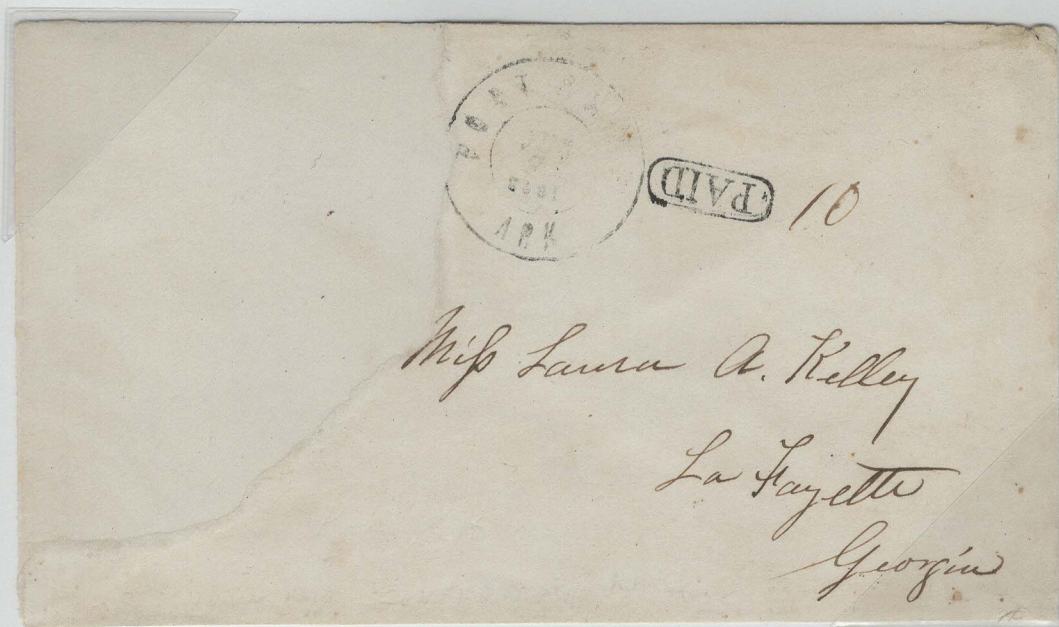 ARK
PAID
10
Miss Laura A. Kelley
La Fayette
Georgia